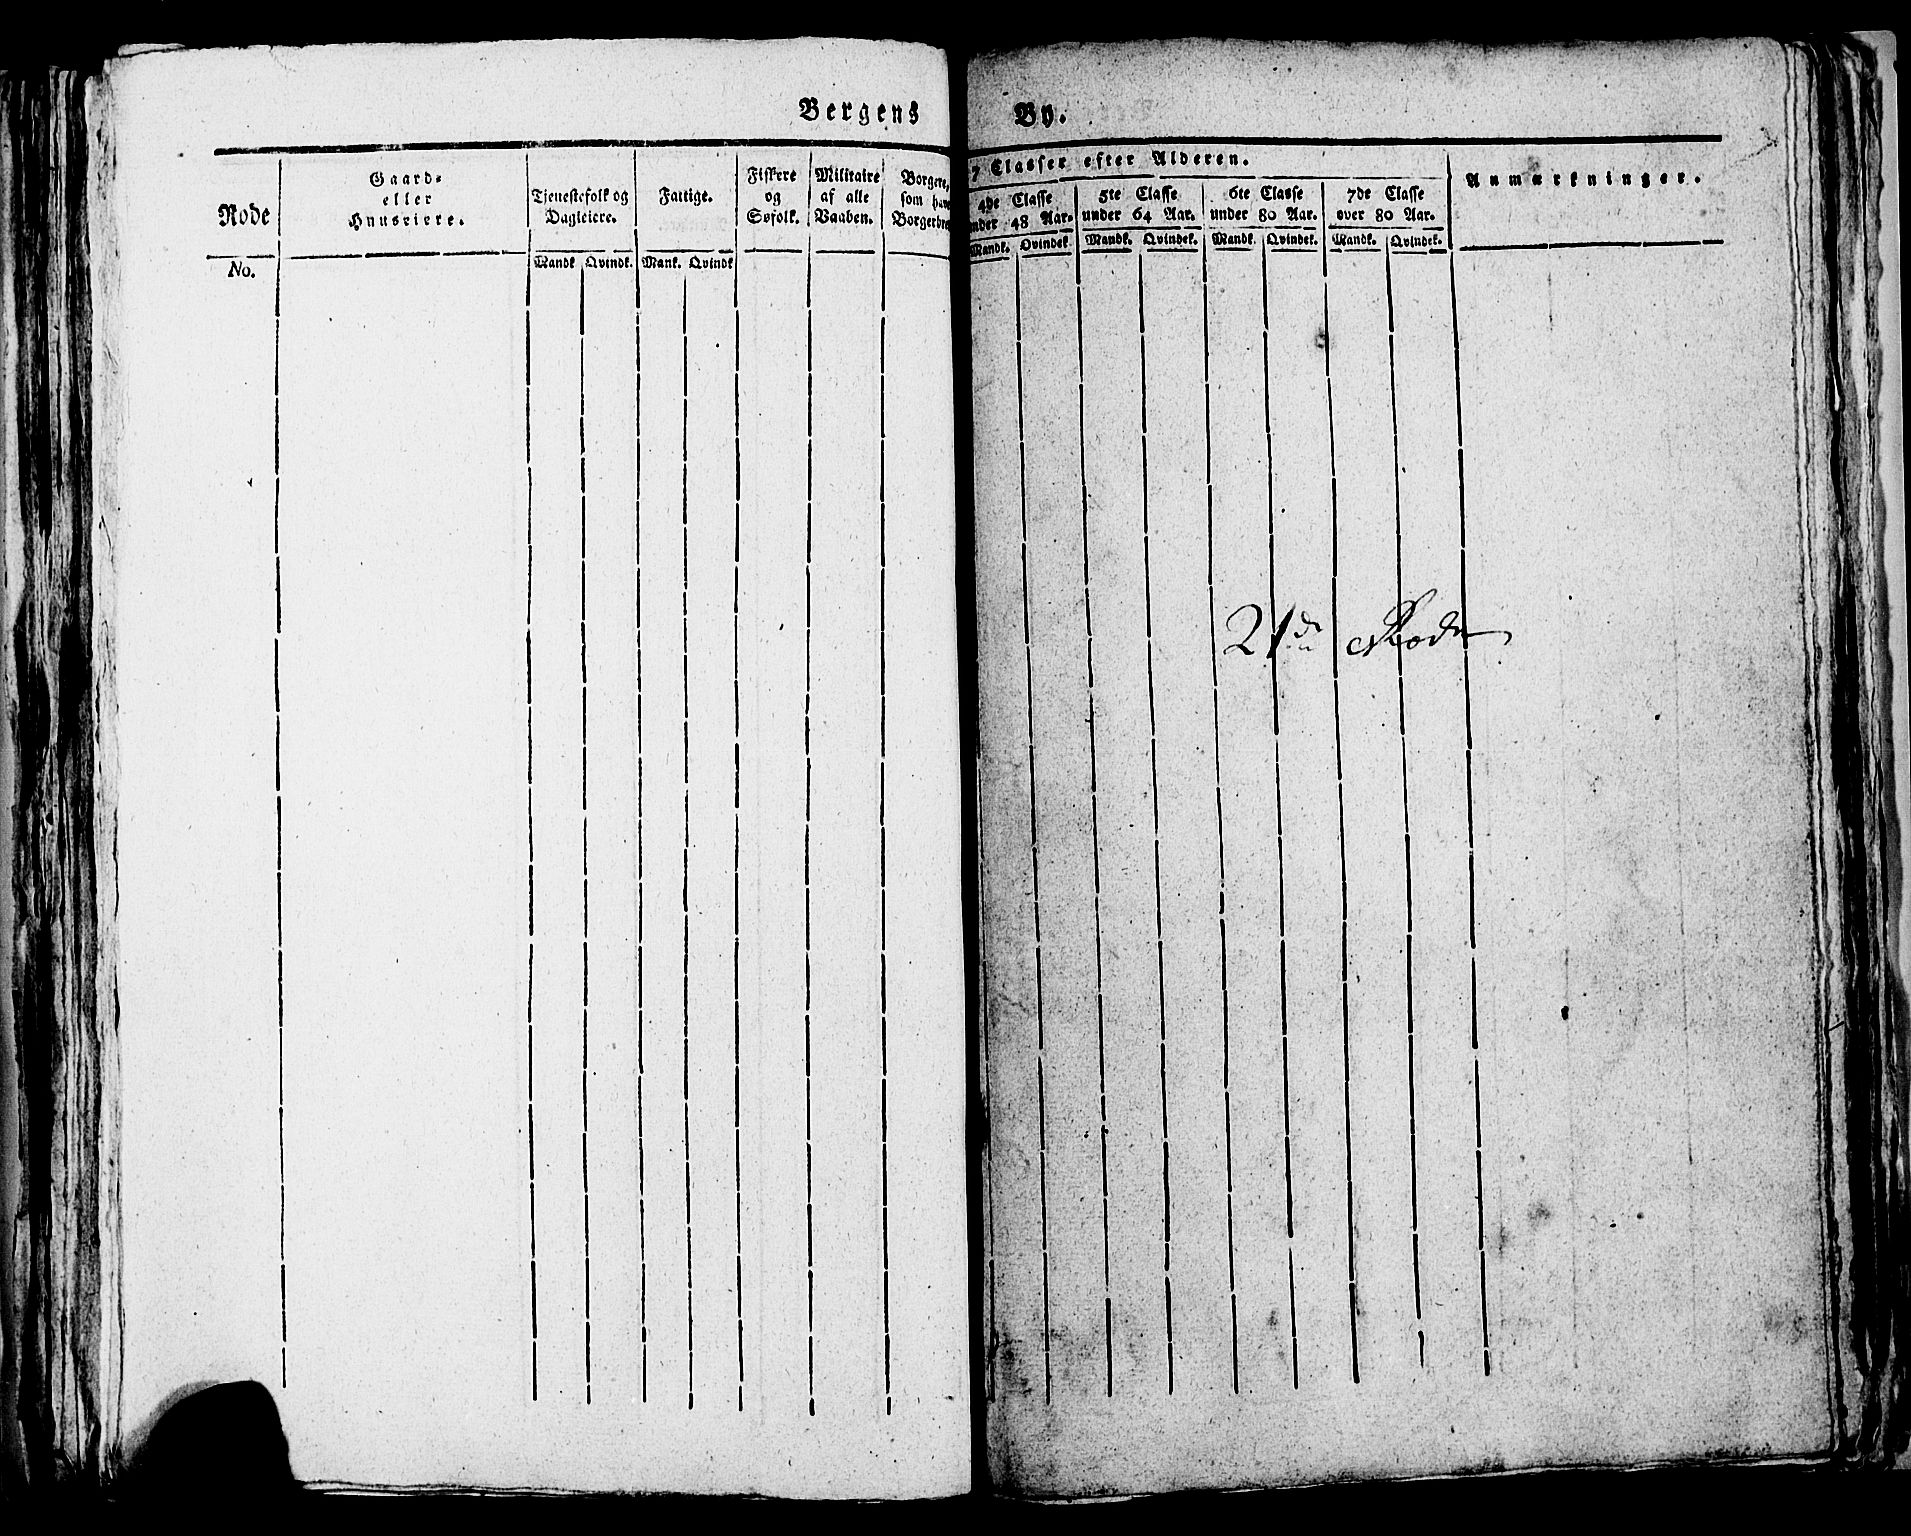 Bergens By.
Rode
No.
Gaard-
eller
Huuseiere.
Tjenestefolk og
Dagleiere.
Mandk Qvindk.
Fattige.
Mank. Qvindk
Fiskere
og
Søfolk.
Militaire
af alle
Vaaben.
Borgere,
som have
7 Classer efter Alderen.
4de Classe
under 48 Aar.
Mandk. Qvindek
5te Classe
under 64 Aar.
Mandk. Qvindek.
6te Classe
under 80 Aar.
Mandk. Qvindek.
7de Classe
over 80 Aar.
Mandk. Qvindek.
Anmærkninger.
21de Rode